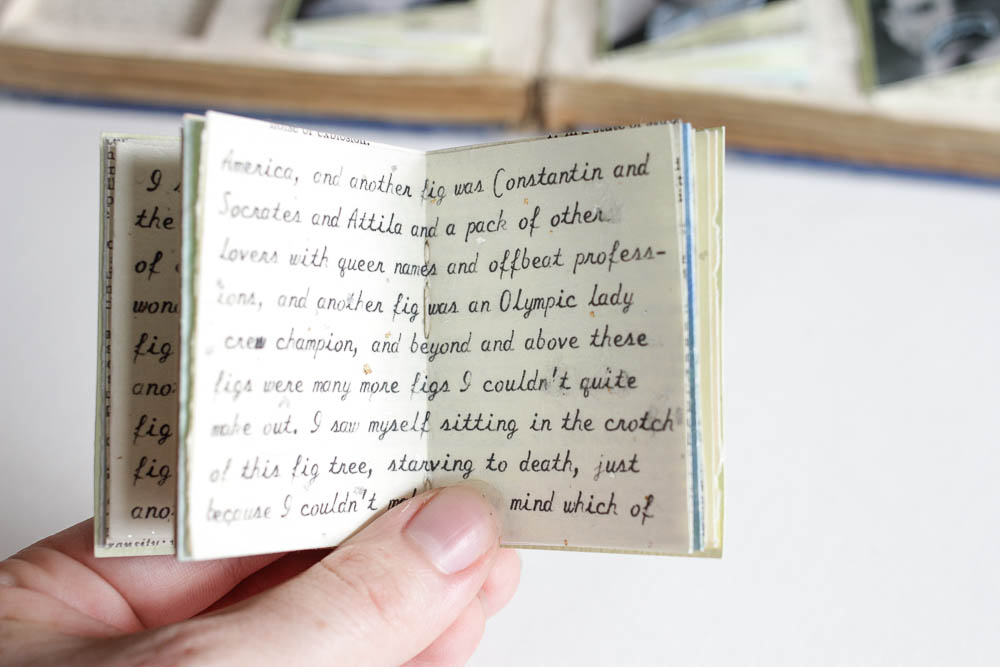 noise of explosion.
I
the
of
fig
ano
fig
fig
ano
America, and another fig was Constantin and
Socrates and Attila and a pack of other
lovers with queer names and offbeat profess-
ions, and another fig was an Olympic lady
crew champion, and beyond and above these
figs were many more figs I couldn't quite
make out. I saw myself sitting in the crotch
of this fig tree, starving to death, just
because I couldn't mind which of